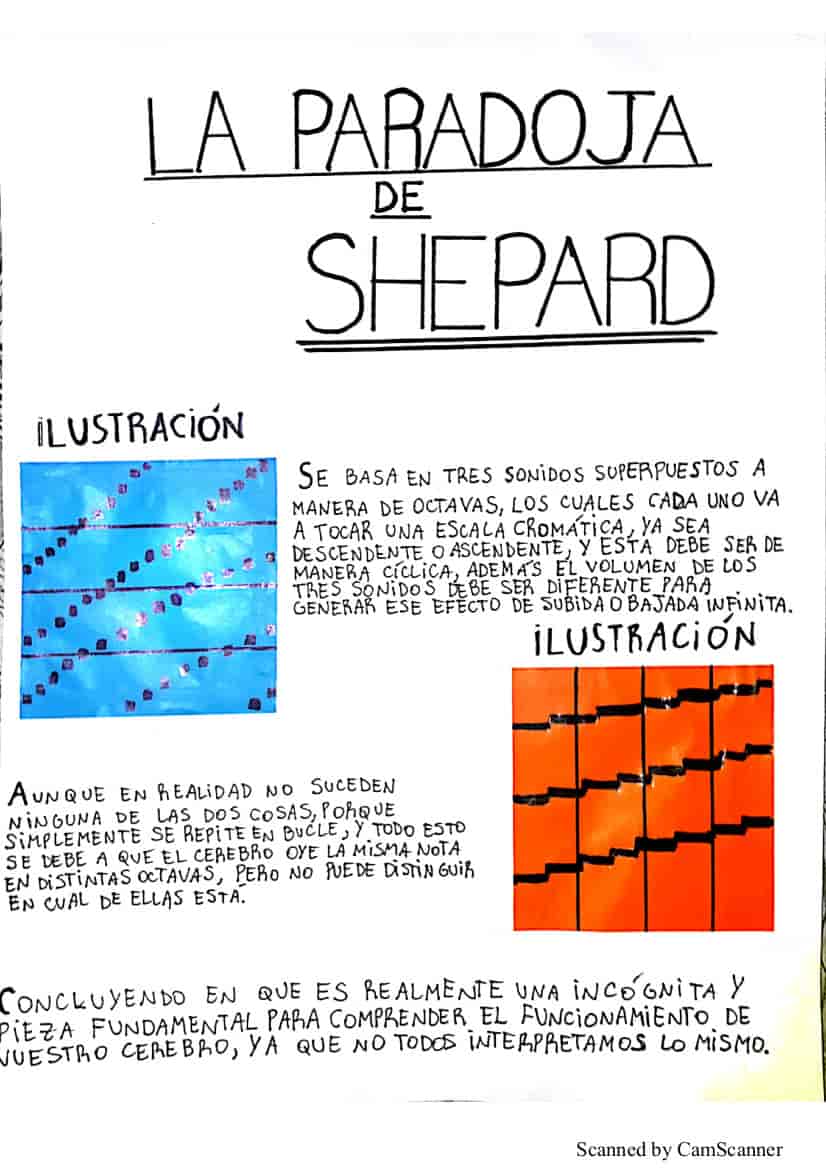 LA PARADOJA
DE
SHEPARD
ILUSTRACIÓN
SE BASA EN TRES SONIDOS SUPERPUESTOS A
MANERA DE OCTAVAS, LOS CUALES CADA UNO VA
A TOCAR UNA ESCALA CROMÁTICA, YA SEA
DESCENDENTE O ASCENDENTE, Y ESTA DEBE SER DE
MANERA CÍCLICA, ADEMÁS EL VOLUMEN DE LOS
TRES SONIDOS DEBE SER DIFERENTE PARA
GENERAR ESE EFECTO DE SUBIDA O BAJADA INFINITA.
ILUSTRACIÓN
AUNQUE EN REALIDAD NO SUCEDEN
NINGUNA DE LAS DOS COSAS, PORQUE
SIMPLEMENTE SE REPITE EN BUCLE, Y TODO ESTO
SE DEBE A QUE EL CEREBRO OYE LA MISMA NOTA
EN DISTINTAS OCTAVAS, PERO NO PUEDE DISTINGUIR
EN CUAL DE ELLAS ESTÁ.
CONCLUYENDO EN QUE ES REALMENTE UNA INCÓGNITA Y
PIEZA FUNDAMENTAL PARA COMPRENDER EL FUNCIONAMIENTO DE
NUESTRO CEREBRO, YA QUE NO TODOS INTERPRETAMOS LO MISMO.
Scanned by CamScanner